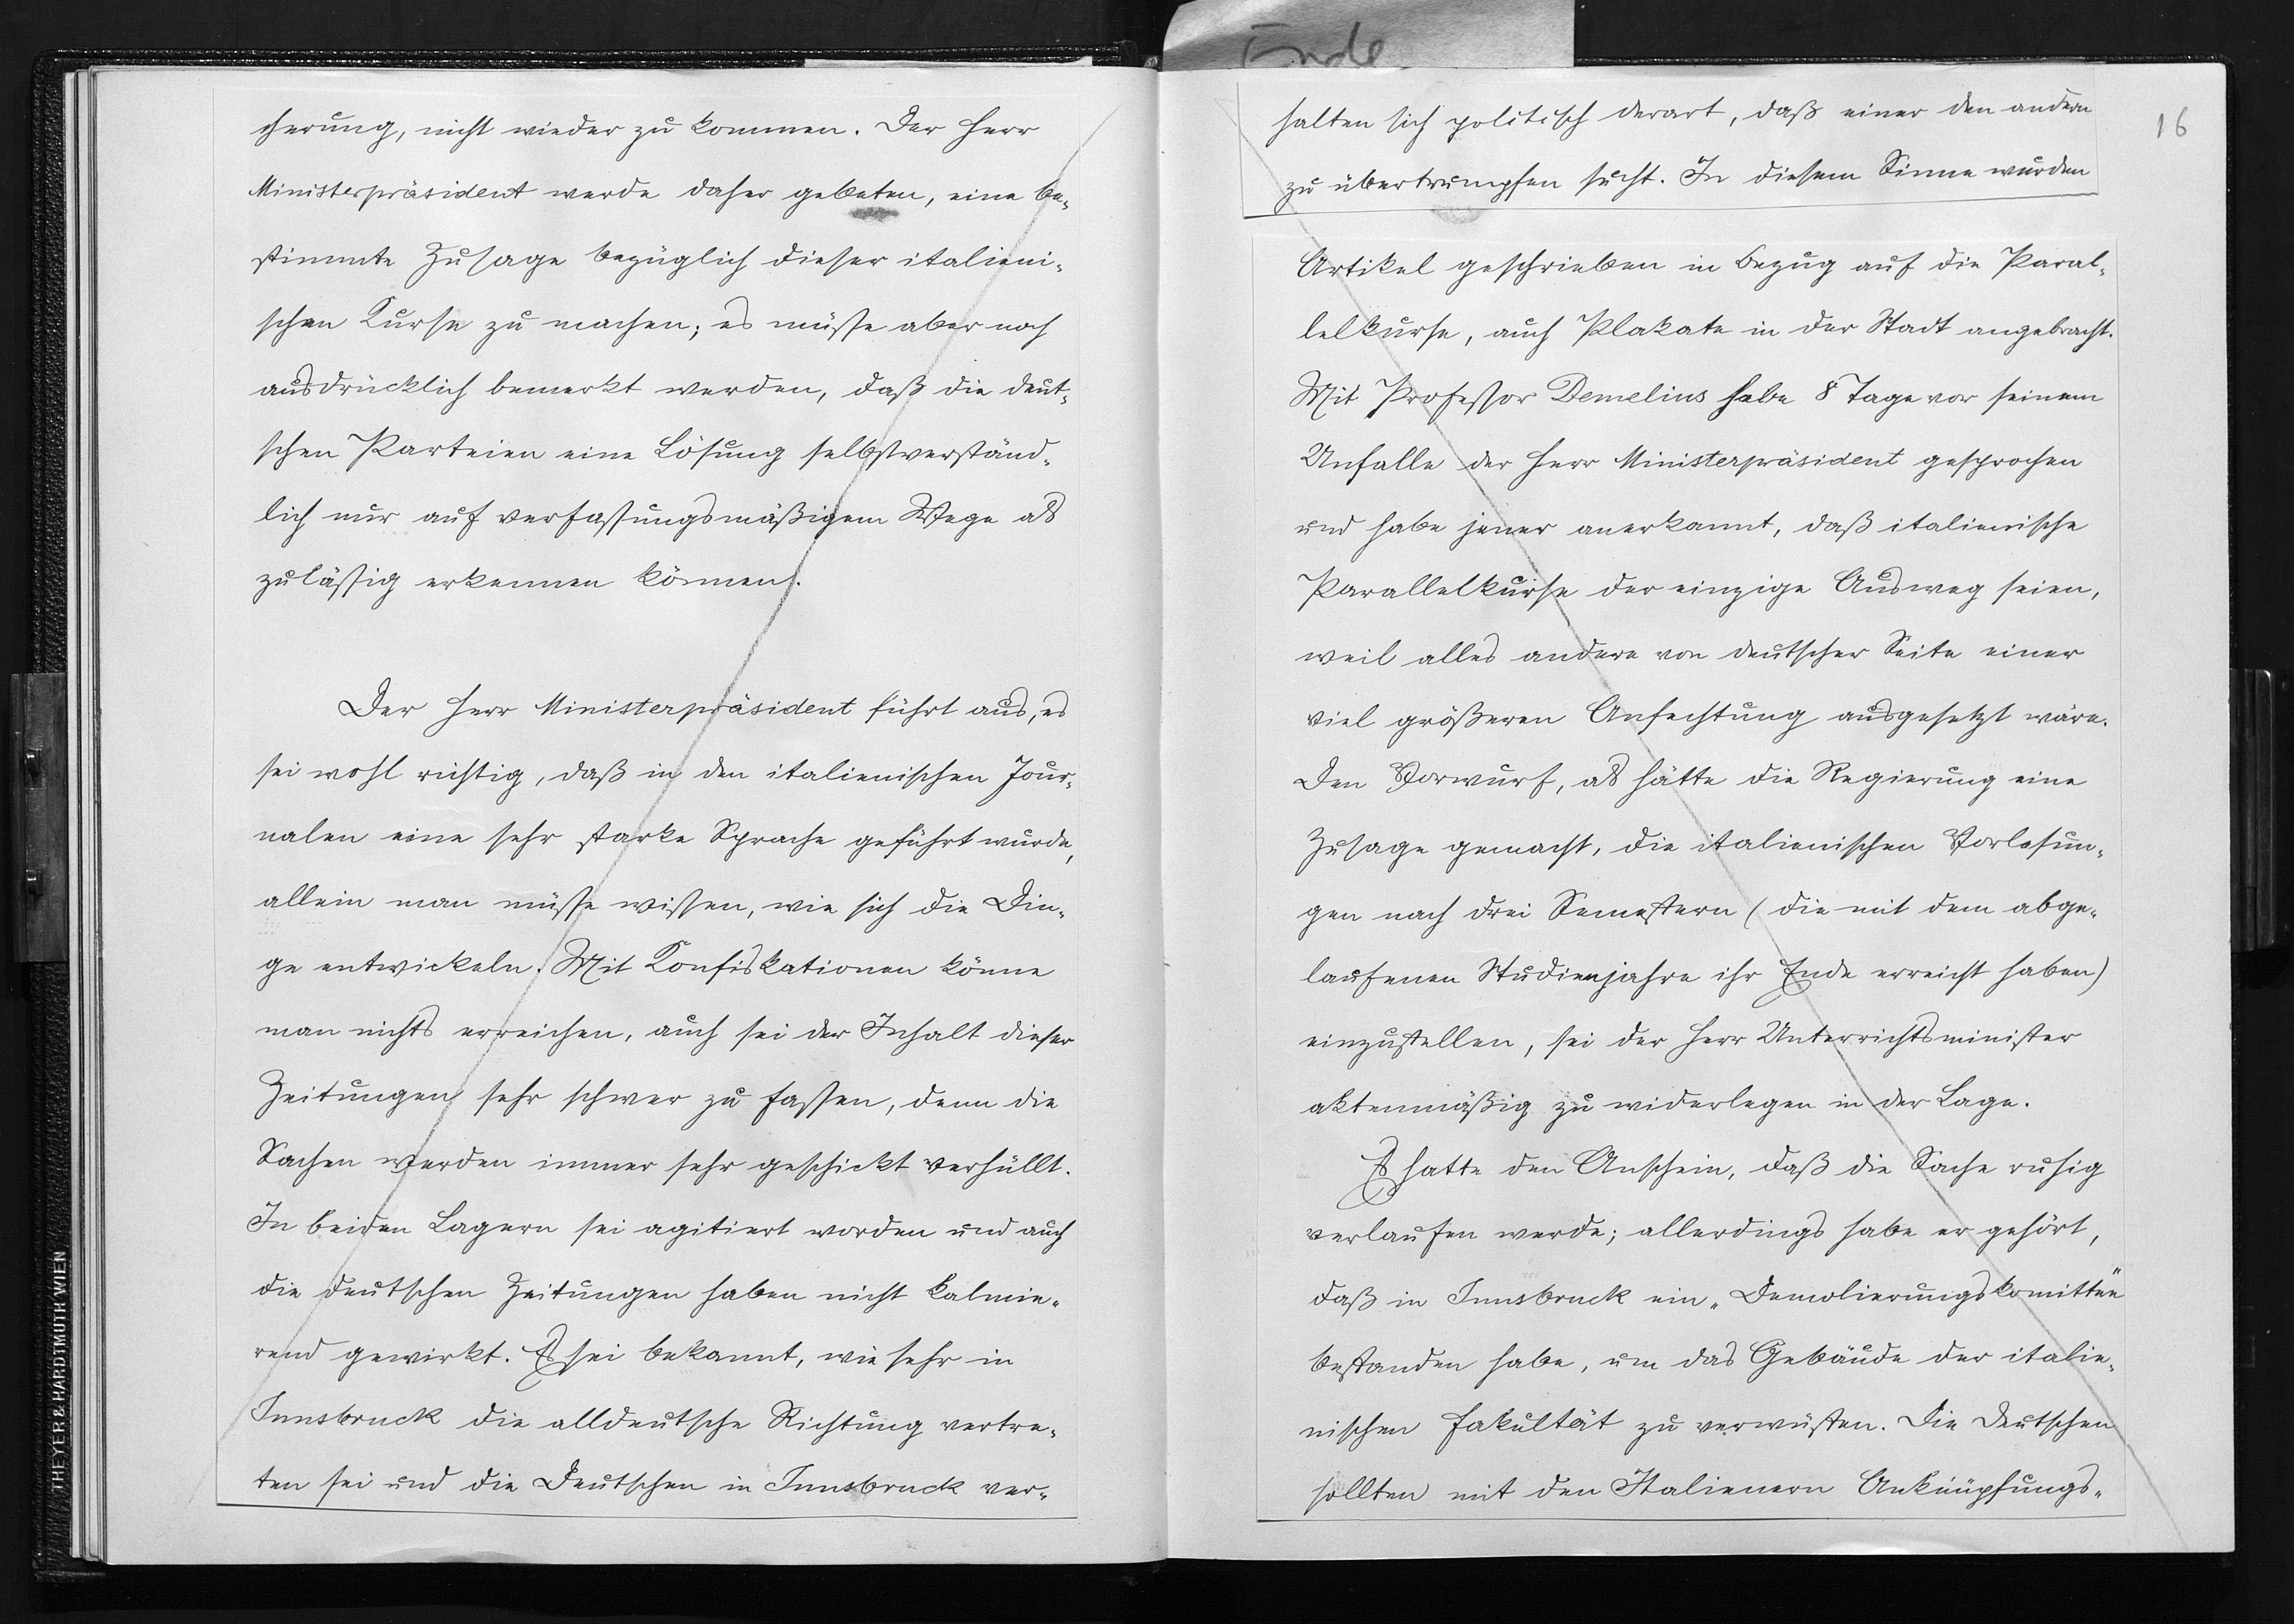 cherung, nicht wieder zu kommen. Der Herr
Ministerpräsident werde daher gebeten, eine be-
stimmte Zusage bezüglich dieser italieni-
schen Kurse zu machen; es müsse aber noch
ausdrücklich bemerkt werden, daß die deut-
schen Parteien eine Lösung selbstverständ-
lich nur auf verfassungsmäßigem Wege als
zulässig erkennen können.
Der Herr Ministerpräsident führt aus, es
sei wohl richtig, daß in den italienischen Jour-
nalen eine sehr starke Sprache geführt wurde,
allein man müsse wissen, wie sich die Din-
ge entwickeln. Mit Konfiskationen könne
man nichts erreichen, auch sei der Inhalt dieser
Zeitungen sehr schwer zu fassen, denn die
Sachen werden immer sehr geschickt verhüllt.
In beiden Lagern sei agitiert worden und auch
die deutschen Zeitungen haben nicht kalmie-
rend gewirkt. Es sei bekannt, wie sehr in
Innsbruck die alldeutsche Richtung vertre-
ten sei und die Deutschen in Innsbruck ver-
THEYER & HARDTMUTH WIEN
Ende
16
halten sich politisch derart, daß einer den andern
zu übertrumpfen sucht. In diesem Sinne wurden
Artikel geschrieben in Bezug auf die Paral-
lelkurse, auch Plakate in der Stadt angebracht.
Mit Professor Demelius habe 8 Tage vor seinem
Unfalle der Herr Ministerpräsident gesprochen
und habe jener anerkannt, daß italienische
Parallelkurse der einzige Ausweg seien,
weil alles andere von deutscher Seite einer
viel größeren Anfechtung ausgesetzt wäre.
Den Vorwurf, als hätte die Regierung eine
Zusage gemacht, die italienischen Vorlesun-
gen nach drei Semestern (die mit dem abge-
laufenen Studienjahre ihr Ende erreicht haben)
einzustellen, sei der Herr Unterrichtsminister
aktenmäßig zu widerlegen in der Lage.
Es hatte den Anschein, daß die Sache ruhig
verlaufen werde; allerdings habe er gehört,
daß in Innsbruck ein „Demolierungskomittee“
bestanden habe, um das Gebäude der italie-
nischen Fakultät zu verwüsten. Die Deutschen
sollten mit den Italienern Anknüpfungs-